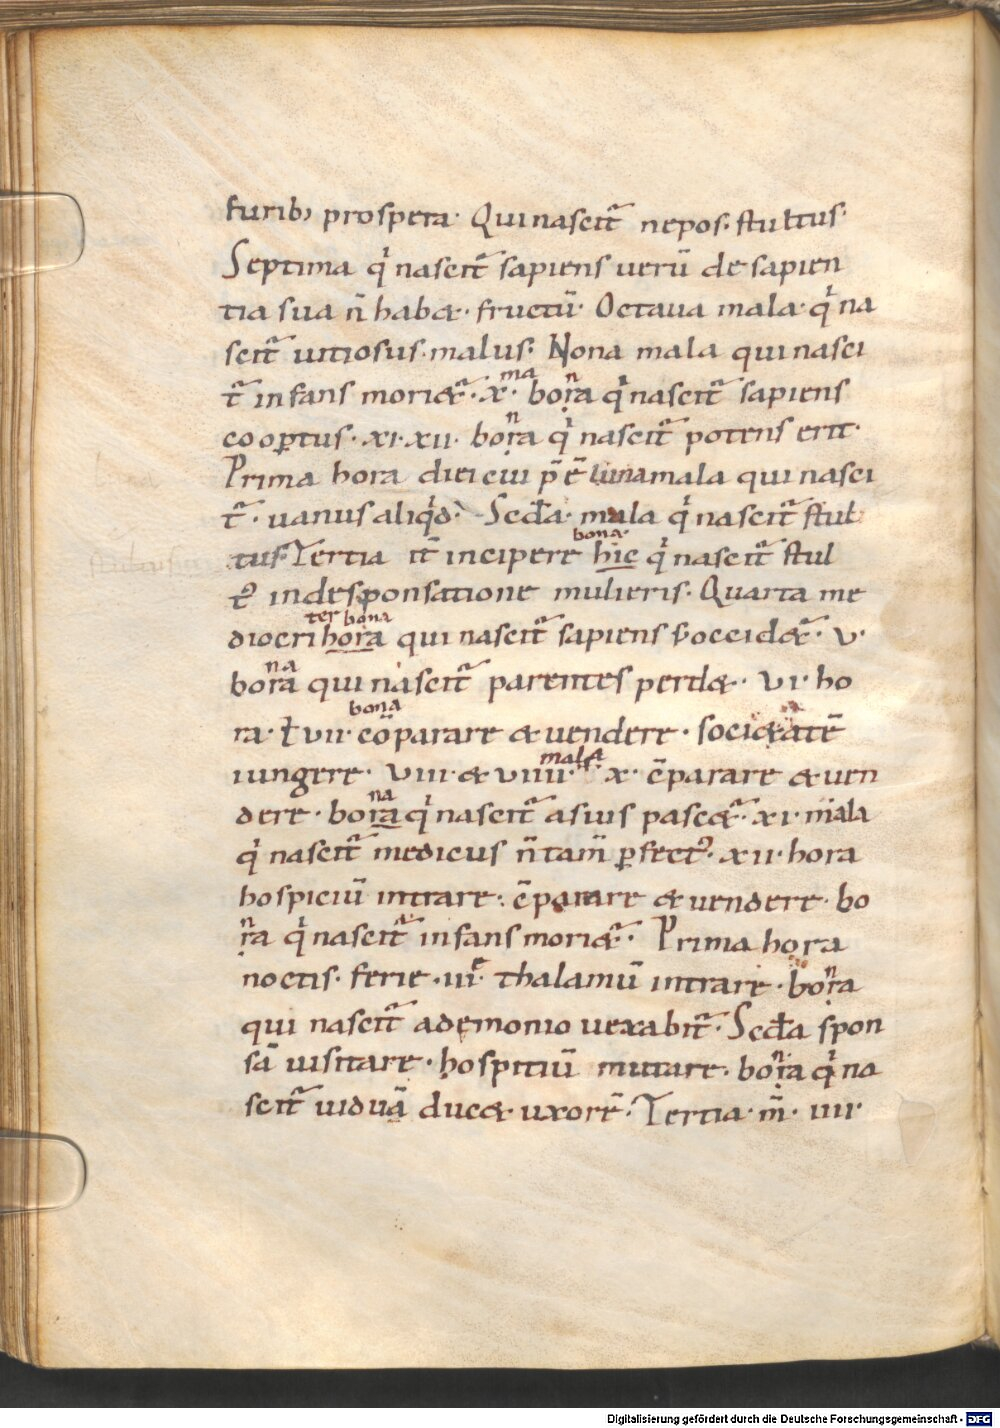 furib; prospera· Qui nascit̄ nepos· stultus·
Septima q' nascit̄ sapiens uerū de sapien
tia sua n̄ habet· fructū· Octaua mala· q' na
scit̄ uitiosus· malus· Nona mala qui nasci
t̄ infans moriet̄· x·ma bon̄a q' nascit̄ sapiens
coopertus· xi· xii· bon̄a q' nascit̄ potens erit·
Prima hora diei cui p̄ ē luna mala qui nasci
t̄· uanus aliq'd· Scđa· mala q' nascit̄ stul
tus· Tertia it̄ incipere bona· hic q' nascit̄ stul
t' in desponsatione mulieris· Quarta me
diocriter bona hora qui nascit̄ sapiens ł occidet̄· v·
bona qui nascit̄ parentes perdet· vi· ho
ra· ł vii· bona cōparare et uendere· societatē
iungere· viii· et viiii· malae x· c̄parare et uen
dere· bona q' nascit̄ asius pascet̄· xi· mala
q' nascit̄ medicus n̄ tam̄ ꝑfect'· xii· hora
hospiciū intrare· c̄parare et uendere· bo
n̄a q' nascit̄ infans moriet̄· Prima hora
noctis· ferie· iiie thalamū intrare· bon̄a
qui nascit̄ ademonio uexabit̄· Scđa spon
sā uisitare· hospitiū mutare· bon̄a q' na
scit̄ uiduā ducet· uxorē· Tertia· m̄· iiii·
Digitalisierung gefördert durch die Deutsche Forschungsgemeinschaft - DFG